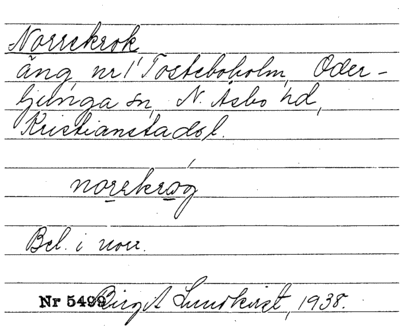 Norrekrok
äng nr 1 Tosteboholm, Oder-
ljunga sn, N. Åsbo hd,
Kristianstads l.
norekrog
Bel. i norr.
Nr 5499 Birgit Lundkvist, 1938.